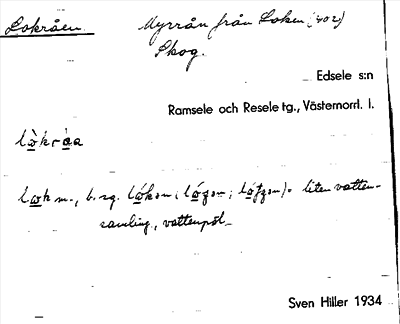 Lokråen. Myrrån från Loken (402)
Skog.
Edsele s:n
Ramsele och Resele tg., Västernorrl. l.
lòkråa
lok m., b. sg. lókøn (lógøn; lótjøn) = liten vatten-
samling, vattenpöl
Sven Hiller 1934